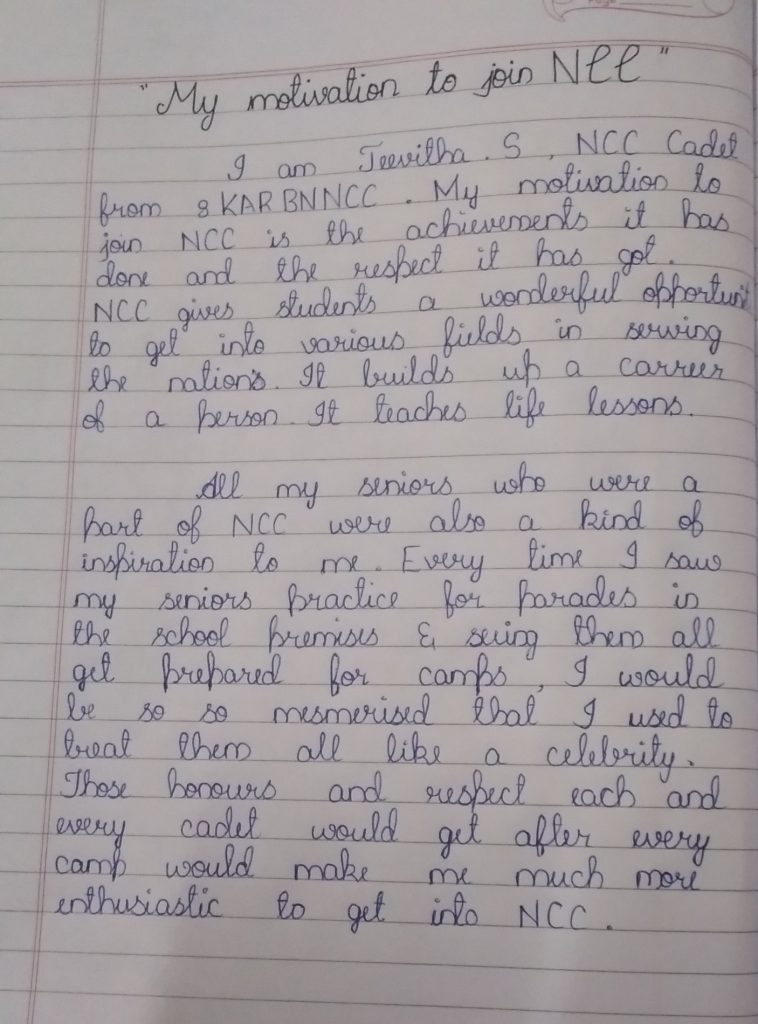 Page
"My motivation to join NCC"
I am Jeevitha . S , NCC Cadet
from 8 KAR BN NCC . My motivation to
join NCC is the achievements it has
done and the respect it has got .
NCC gives students a wonderful opportunit
to get into various fields in serving
the nation's. It builds up a carreer
of a person. It teaches life lessons.
All my seniors who were a
part of NCC were also a kind of
inspiration to me . Every time I saw
my seniors practice for parades in
the school premises & seeing them all
get prepared for camps , I would
be so so mesmerised that I used to
treat them all like a celebrity .
Those honours and respect each and
every cadet would get after every
camp would make me much more
enthusiastic to get into NCC .